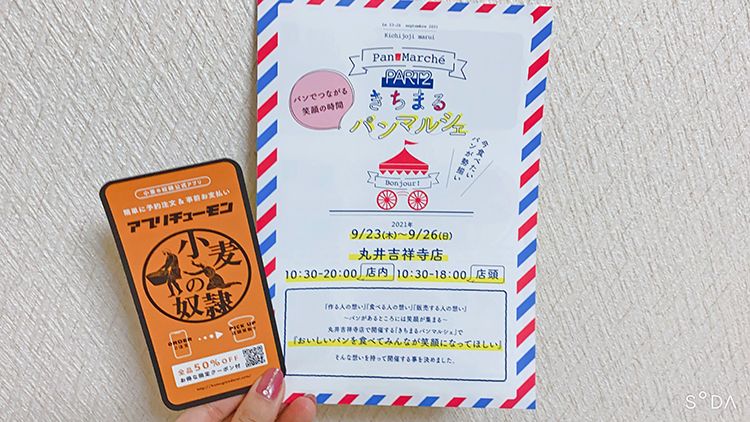 Le 23-26 septembre 2021
Kichijoji marui
Pan Marché
PART2
きちまる
パンマルシェ
パンでつながる
笑顔の時間
今食べたい
パンが勢揃い
Bonjour!
2021年
9/23(木)～9/26(日)
丸井吉祥寺店
10:30-20:00 店内 10:30-18:00 店頭
「作る人の想い」「食べる人の想い」「販売する人の想い」
～パンがあるところには笑顔が集まる～
丸井吉祥寺店で開催する「きちまるパンマルシェ」で
「おいしいパンを食べてみんなが笑顔になってほしい」
そんな想いを持って開催する事を決めました。
小麦の奴隷公式アプリ
簡単に予約注文&事前お支払い
アプリチューモン
小麦
の
奴隷
ORDER
PICK UP
全品50%OFF
お得な限定クーポン付
SODA